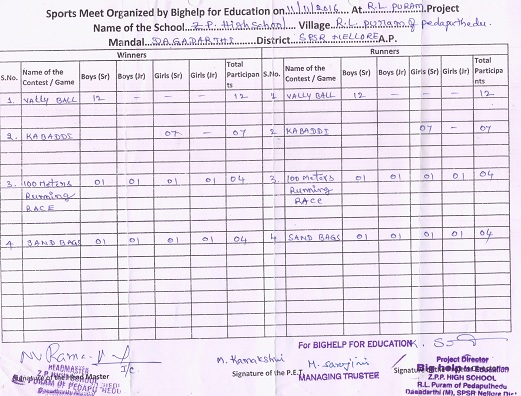 Sports Meet Organized by Bighelp for Education on 11/11/2016 At R.L PURAM Project
Name of the School Z.P. High School Village R.L. puram & pedaputhedu.
Mandal DAGADARTHI District SPSR NELLORE A.P.
Winners Runners
S.No. Name of the Contest / Game Boys (Sr) Boys (Jr) Girls (Sr) Girls (Jr) Total Participants S.No. Name of the Contest / Game Boys (Sr) Boys (Jr) Girls (Sr) Girls (Jr) Total Participants
1. VALLY BALL 12 - - - 12 1 VALLY BALL 12 - - - 12
2. KABADDI 07 - 07 2 KABADDI 07 - 07
3. 100 Meters 01 01 01 01 04 3. 100 Meters 01 01 01 01 04
Running Running
RACE RACE
4 SAND BAGS 01 01 01 01 04 4 SAND BAGS 01 01 01 01 04
For BIGHELP FOR EDUCATION
M. Kamakshi M. Sarojini
I/C.
HEADMASTER
Z.P. HIGH SCHOOL
Signature of the Head Master
R.L. PURAM OF PEDAPUTHEDU
Signature of the P.E.T. MANAGING TRUSTEE
Project Director
Big help for Education
Z.P.P. HIGH SCHOOL
R.L. Puram of Pedaputhedu
Dagadarthi (M), SPSR Nellore Dist